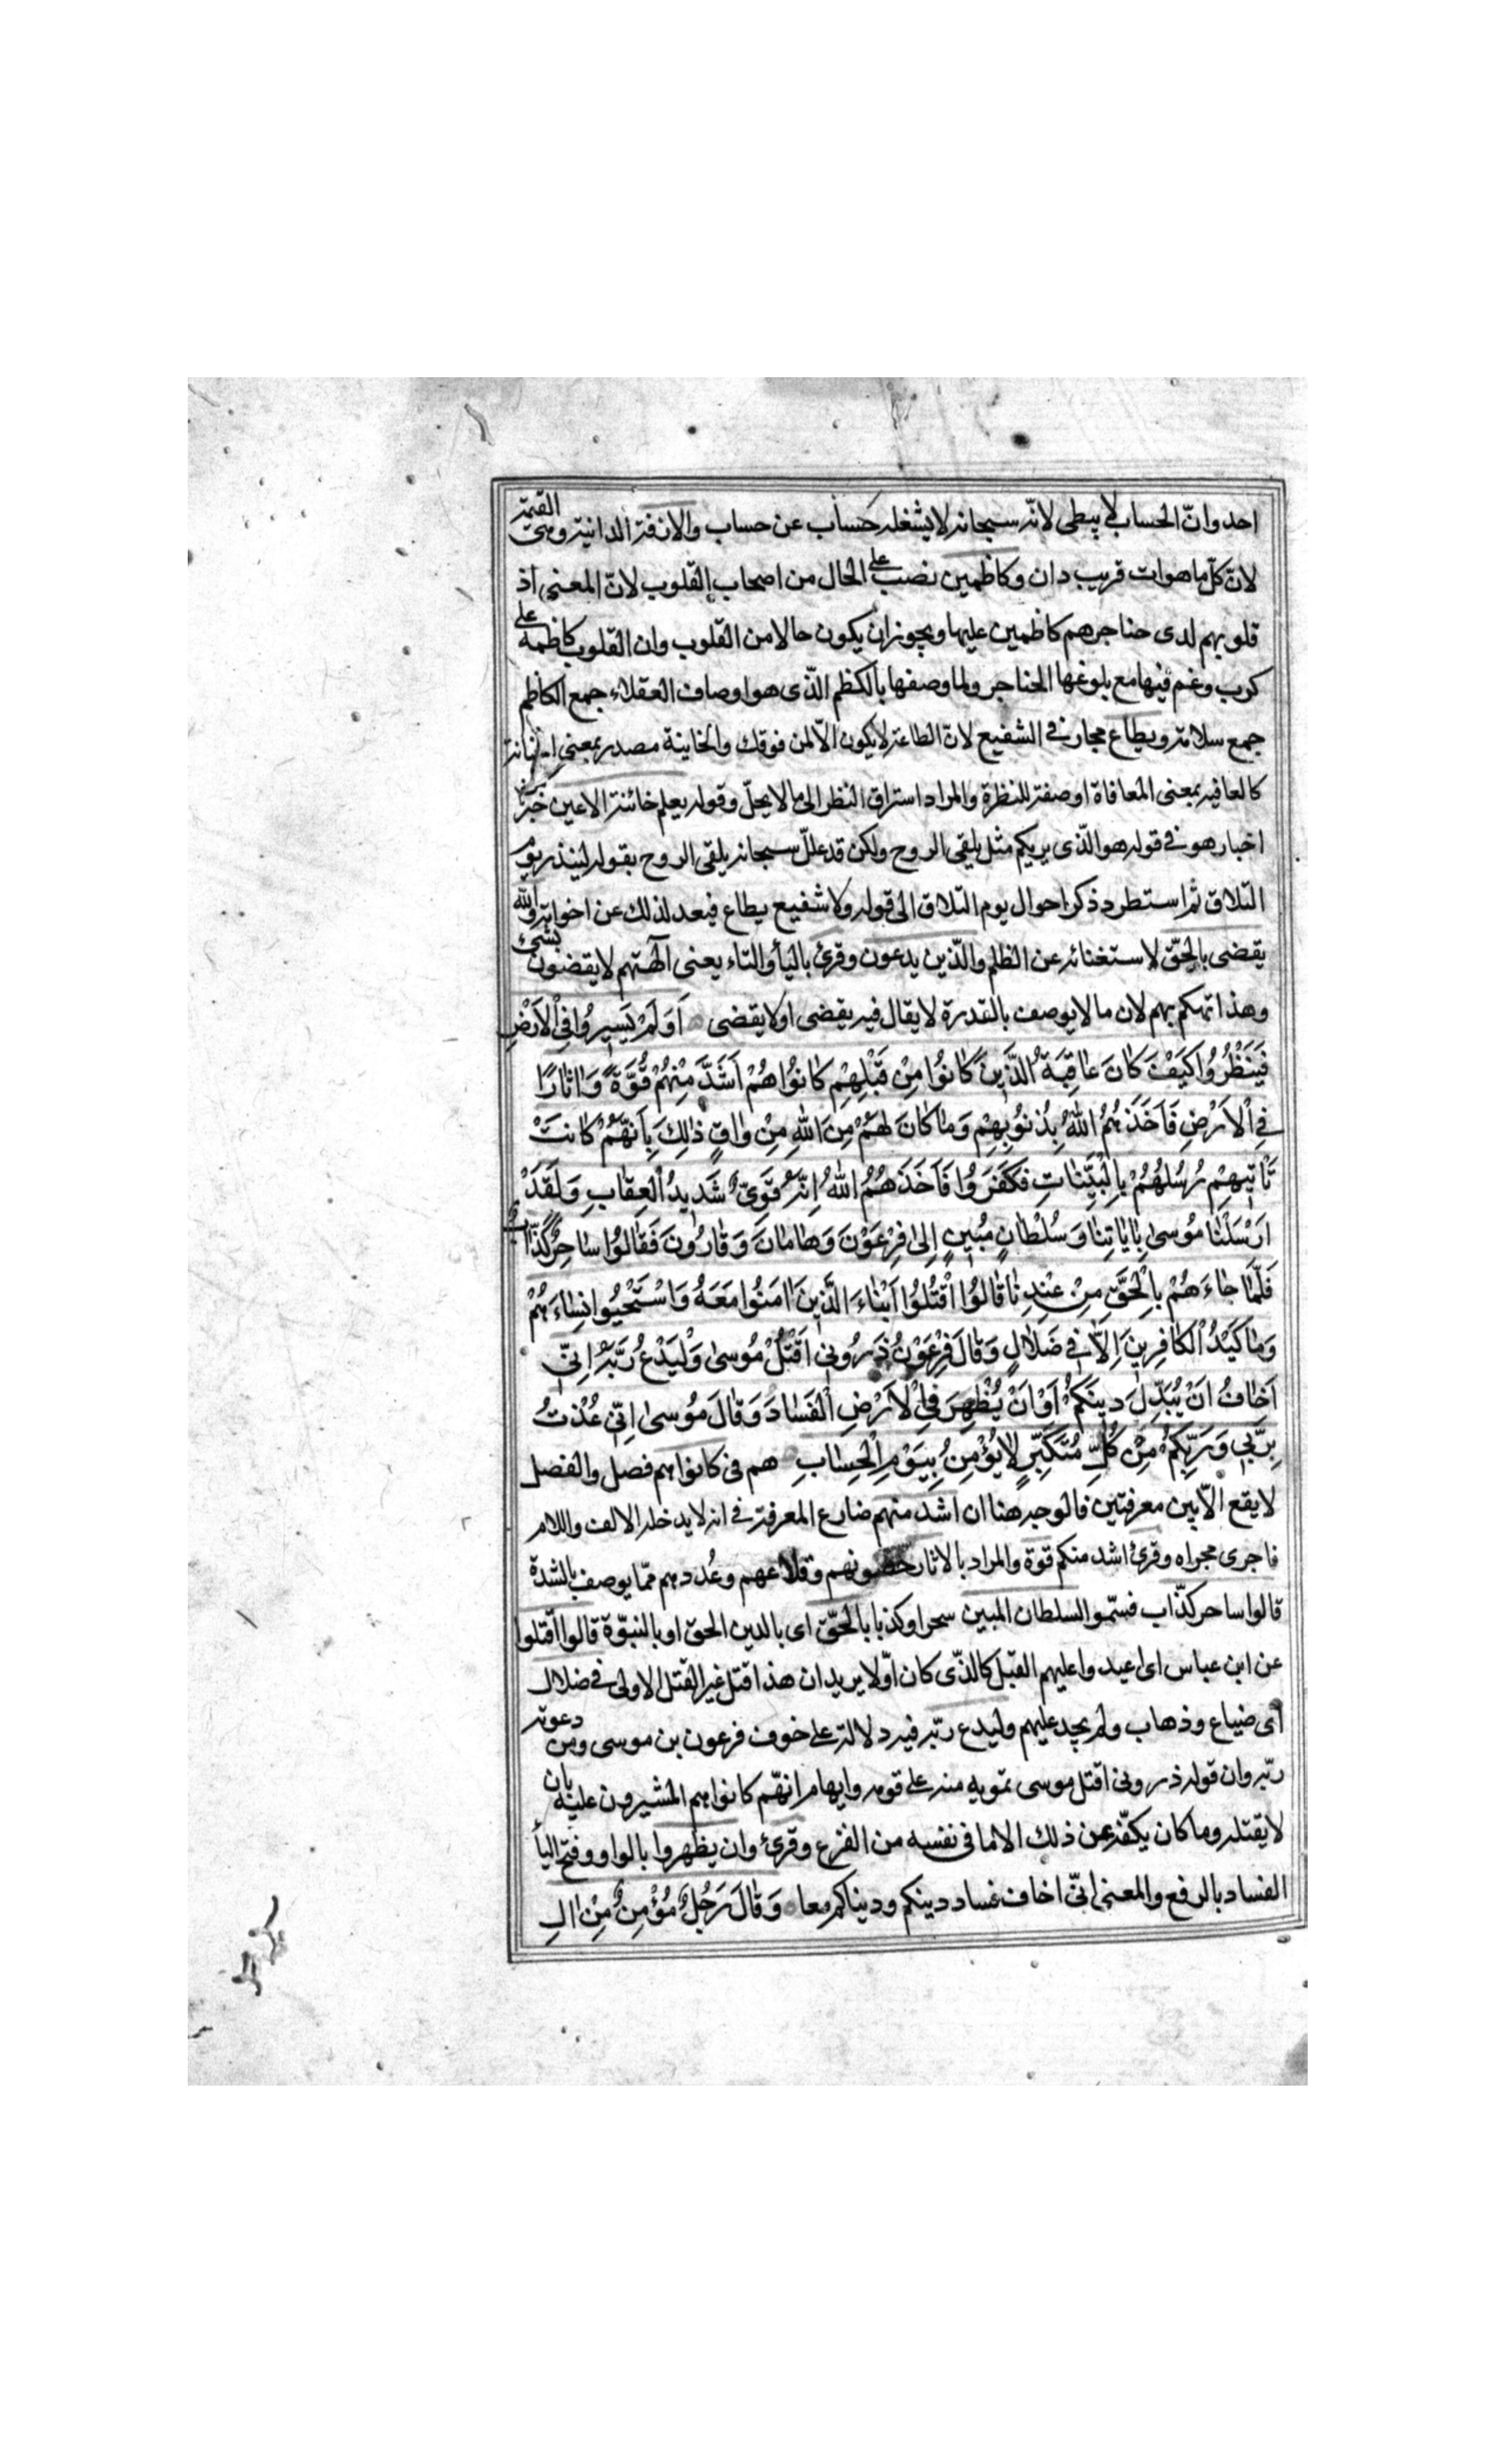 احد وانّ الحساب لا يبطى لانّه سبحانه لا يشغله حساب عن حساب والازفة الدانية وهى القيمة
لانّ كلّ ما هو ات قريب دان وكاظمين نصب على الحال من اصحاب القلوب لانّ المعنى اذ
قلوبهم لدى حناجرهم كاظمين عليها ويجوز ان يكون حالا من القلوب وان القلوب كاظمة على
كرب وغم فيها مع بلوغها الحناجر ولما وصفها بالكظم الّذى هو اوصاف العقلاء جمع الكاظم
جمع سلامة ويطاع مجاز فى الشفيع لانّ الطاعة لا يكون الّا لمن فوقك والخاينة مصدر بمعنى الخيانة
كالعافيه بمعنى المعافاة او صفة للنظرة والمراد استراق النظر الى ما لا يحلّ وقوله يعلم خائنة الاعين خبر من
اخبار هو فى قوله هو الّذى يريكم مثل يلقى الروح ولكن قد علّل سبحانه يلقى الروح بقوله لينذر يوم
التلاق ثم استطرد ذكر احوال يوم التلاق الى قوله ولا شفيع يطاع فبعد لذلك عن اخواته والله
يقضى بالحقّ لاستغنائه عن الظلم والّذين يدعون وقرئ بالياء والتاء يعنى آلهتهم لا يقضون بشىء
وهذا تهكم بهم لان ما لا يوصف بالقدرة لا يقال فيه يقضى او لا يقضى اَوَلَمْ يَسِيرُوا فِى الْاَرْضِ
فَيَنْظُرُوا كَيْفَ كَانَ عَاقِبَةُ الَّذِينَ كَانُوا مِنْ قَبْلِهِمْ كَانُوا هُمْ اَشَدَّ مِنْهُمْ قُوَّةً وَاٰثَارًا
فِى الْاَرْضِ فَاَخَذَهُمُ اللهُ بِذُنُوبِهِمْ وَمَا كَانَ لَهُمْ مِنَ اللهِ مِنْ وَاقٍ ذٰلِكَ بِاَنَّهُمْ كَانَتْ
تَأْتِيهِمْ رُسُلُهُمْ بِالْبَيِّنَاتِ فَكَفَرُوا فَاَخَذَهُمُ اللهُ اِنَّهُ قَوِىٌّ شَدِيدُ الْعِقَابِ وَلَقَدْ
اَرْسَلْنَا مُوسىٰ بِاٰيَاتِنَا وَسُلْطَانٍ مُبِينٍ اِلىٰ فِرْعَوْنَ وَهَامَانَ وَقَارُونَ فَقَالُوا سَاحِرٌ كَذَّابٌ
فَلَمَّا جَاءَهُمْ بِالْحَقِّ مِنْ عِنْدِنَا قَالُوا اقْتُلُوا اَبْنَاءَ الَّذِينَ اٰمَنُوا مَعَهُ وَاسْتَحْيُوا نِسَاءَهُمْ
وَمَا كَيْدُ الْكَافِرِينَ اِلَّا فِى ضَلَالٍ وَقَالَ فِرْعَوْنُ ذَرُونِى اَقْتُلْ مُوسىٰ وَلْيَدْعُ رَبَّهُ اِنِّى
اَخَافُ اَنْ يُبَدِّلَ دِينَكُمْ اَوْ اَنْ يُظْهِرَ فِى الْاَرْضِ الْفَسَادَ وَقَالَ مُوسىٰ اِنِّى عُذْتُ
بِرَبِّى وَرَبِّكُمْ مِنْ كُلِّ مُتَكَبِّرٍ لَا يُؤْمِنُ بِيَوْمِ الْحِسَابِ هم فى كانوا هم فصل والفصل
لا يقع الّا بين معرفتين فالوجه هنا ان اشد منهم ضارع المعرفة فى انه لا يدخله الالف واللام
فاجرى مجراه وقرئ اشد منكم قوة والمراد بالاثار حصونهم وقلاعهم وعُددهم ممّا يوصف بالشدة
قالوا ساحر كذّاب فسمّوا السلطان المبين سحرا وكذبا بالحقّ اى بالدين الحق او بالنبوّة قالوا اقتلوا
عن ابن عباس اى اعيدوا عليهم القتل كالذّى كان اوّلا يريد ان هذا قتل غير القتل الاولى فى ضلال
اى ضياع وذهاب ولم يجد عليهم وليدع ربّه فيه دلالة على خوف فرعون بن موسى ومن دعوته
ربّه وان قوله ذرونى اقتل موسى تمويه منه على قومه وايهام انهّم كانوا هم المشيرون عليه بان
لا يقتله وما كان يكفّه عن ذلك الا ما فى نفسه من الفزع وقرئ وان يظهروا بالواو وفتح الياء
الفساد بالرفع والمعنى انّى اخاف فساد دينكم ودنياكم معا وَقَالَ رَجُلٌ مُؤْمِنٌ مِنْ اٰلِ